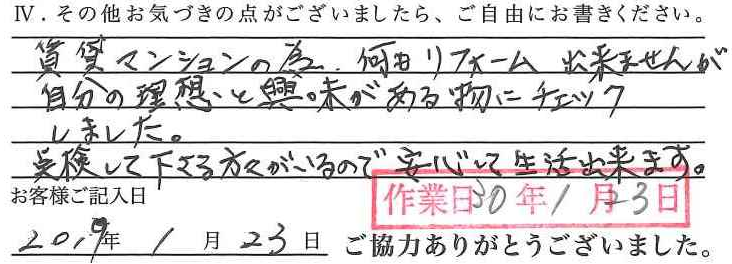 Ⅳ．その他お気づきの点がございましたら、ご自由にお書きください。
賃貸マンションの為、何もリフォーム出来ませんが
自分の理想と興味がある物にチェック
しました。
点検して下さる方々がいるので安心して生活出来ます。
お客様ご記入日
作業日30年1月23日
2019年1月23日
ご協力ありがとうございました。